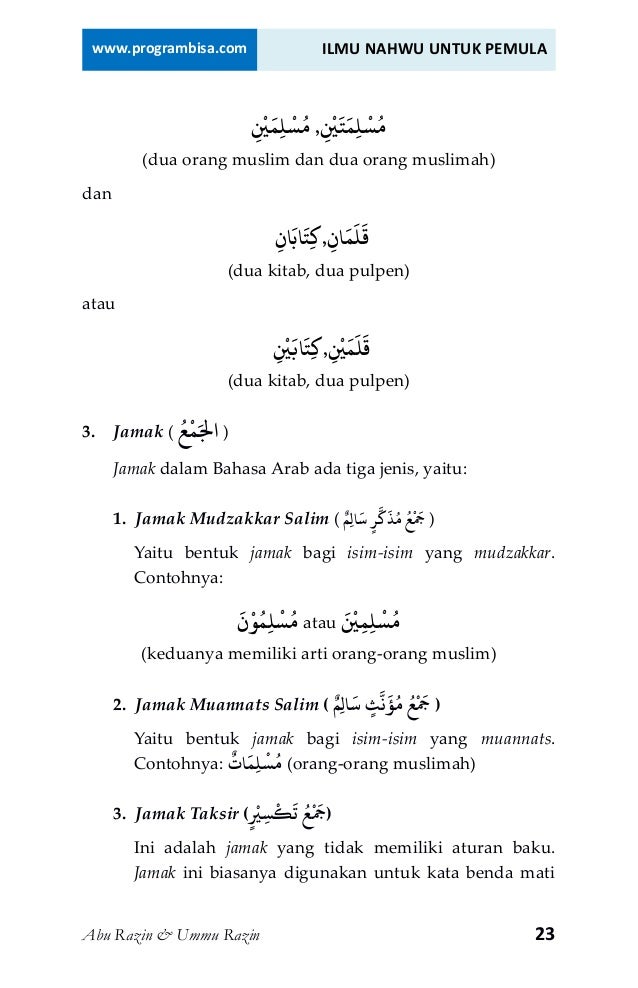 www.programbisa.com ILMU NAHWU UNTUK PEMULA
مُسْلِمَتَيْنِ, مُسْلِمَيْنِ
(dua orang muslim dan dua orang muslimah)
dan
قَلَمَانِ, كِتَابَانِ
(dua kitab, dua pulpen)
atau
قَلَمَيْنِ, كِتَابَيْنِ
(dua kitab, dua pulpen)
3. Jamak ( الجَمْعُ )
Jamak dalam Bahasa Arab ada tiga jenis, yaitu:
1. Jamak Mudzakkar Salim ( جَمْعُ مُذَكَّرٍ سَالِمٌ )
Yaitu bentuk jamak bagi isim-isim yang mudzakkar.
Contohnya:
مُسْلِمُوْنَ atau مُسْلِمِيْنَ
(keduanya memiliki arti orang-orang muslim)
2. Jamak Muannats Salim ( جَمْعُ مُؤَنَّثٍ سَالِمٌ )
Yaitu bentuk jamak bagi isim-isim yang muannats.
Contohnya: مُسْلِمَاتٌ (orang-orang muslimah)
3. Jamak Taksir (جَمْعُ تَكْسِيْرٍ)
Ini adalah jamak yang tidak memiliki aturan baku.
Jamak ini biasanya digunakan untuk kata benda mati
Abu Razin & Ummu Razin 23